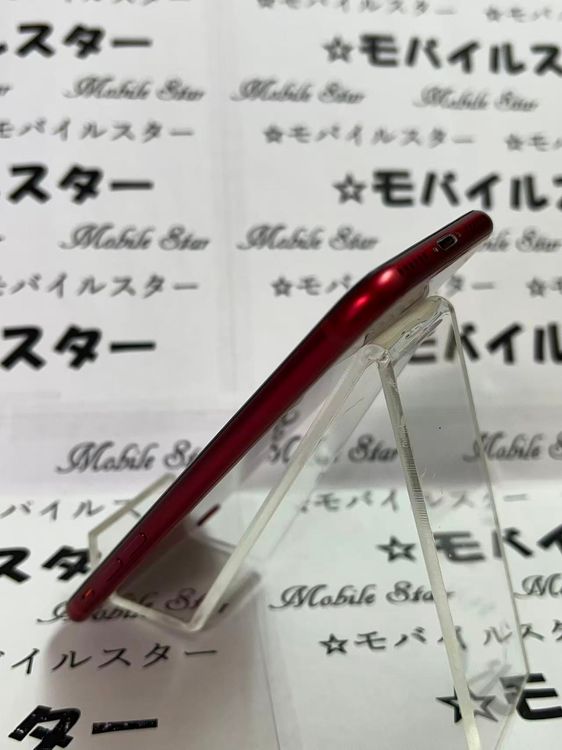 ルスター ☆モバイルス
Mobile Star Mobile Star Mobile Star
モバイルスター ☆モバイルスター ☆モ
ルスター ☆モバイルス
Mobile Star Mobile Star
モバイルスター ☆モバイルスター ☆モバ
ルスター モバイル
Mobile Star Mobile Star
バイルスター ☆モバイルスター
スター ☆モバイ
Mobile Star Mobile Star Mobile
バイルスター ☆モバイルスタ
ター ☆モ